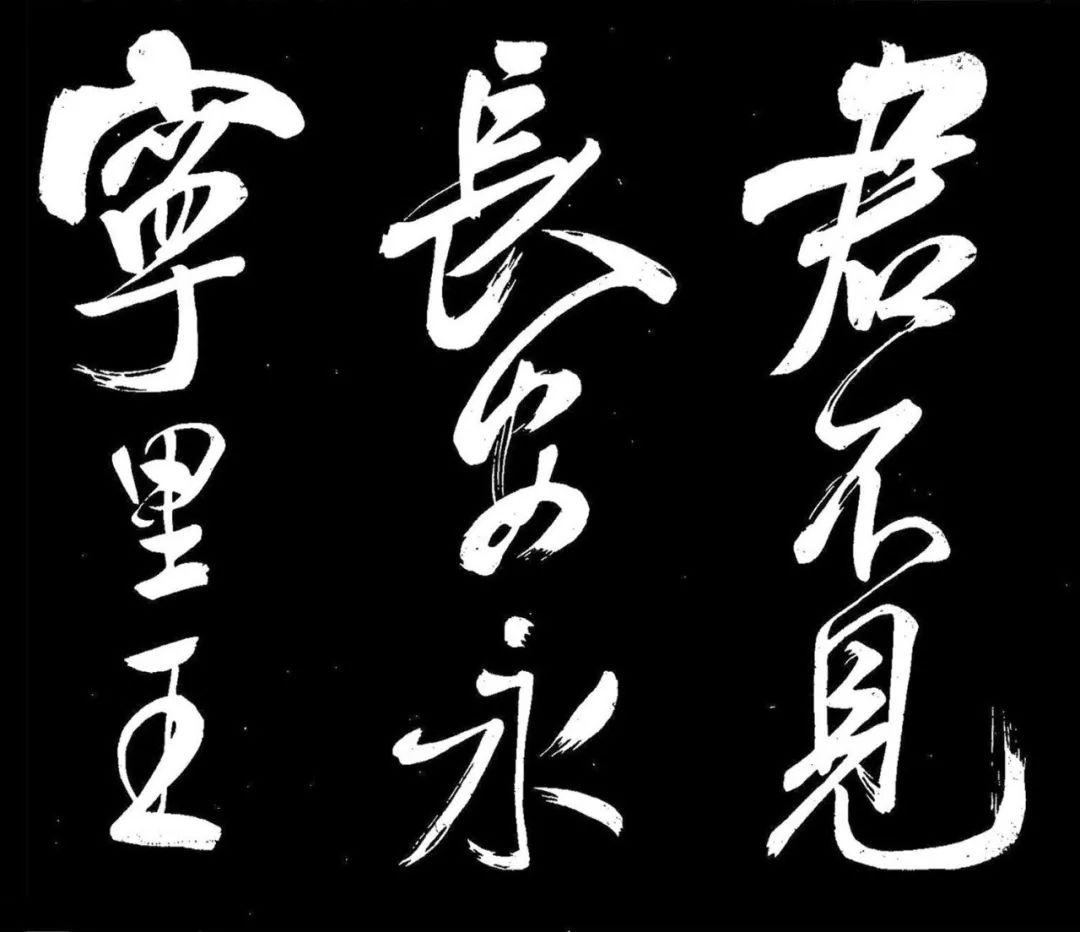 君不見
長安永
寧里王